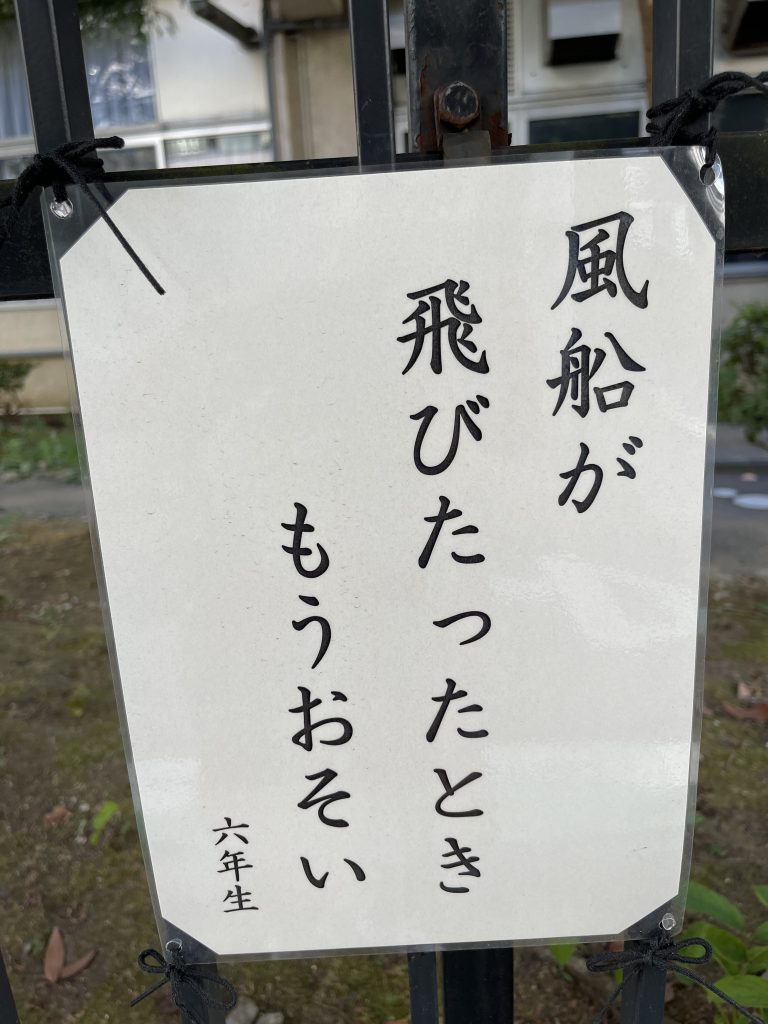 風船が
飛びたったとき
もうおそい
六年生